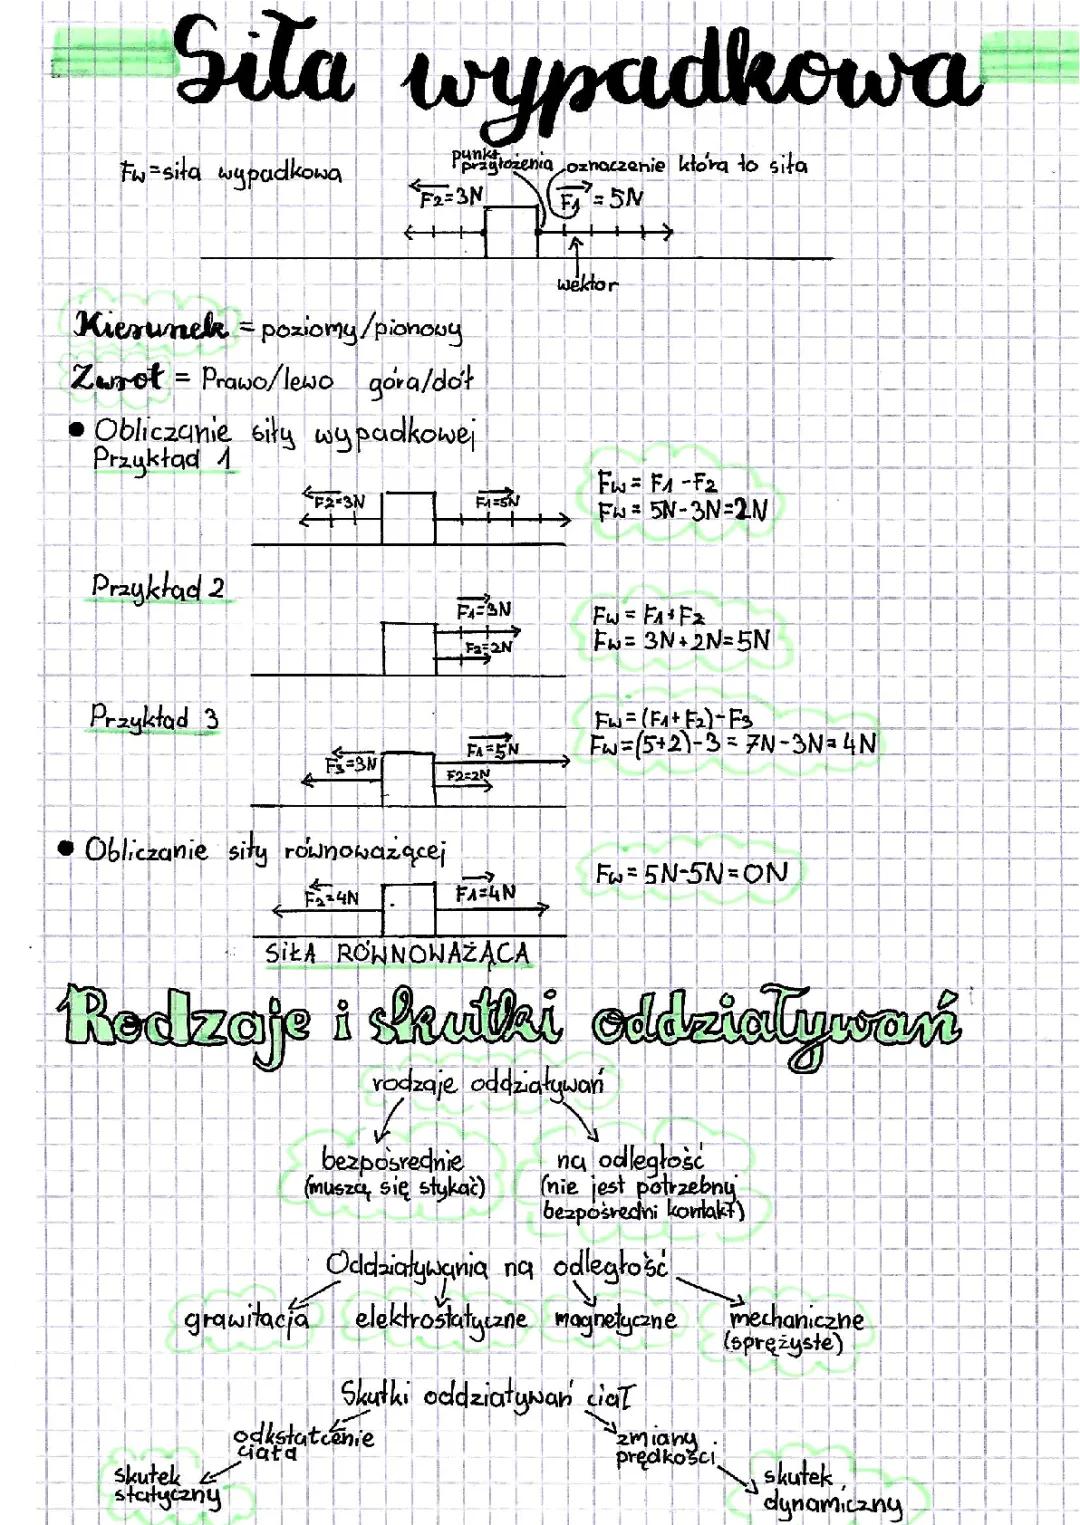 Siła wypadkowa
Fw=siła wypadkowa
punkt przyłożenia
oznaczenie która to siła
F2=3N
F1=5N
wektor
Kierunek = poziomy/pionowy
Zwrot = Prawo/lewo góra/dół
• Obliczanie siły wypadkowej
Przykład 1
F2=3N
F1=5N
Fw = F1-F2
Fw = 5N-3N=2N
Przykład 2
F1=3N
F2=2N
Fw = F1+F2
Fw = 3N+2N=5N
Przykład 3
F3=3N
F1=5N
F2=2N
Fw=(F1+F2)-F3
Fw=(5+2)-3=7N-3N=4N
• Obliczanie siły równoważącej
F2=4N
F1=4N
Fw=5N-5N=0N
SIŁA RÓWNOWAŻĄCA
Rodzaje i skutki oddziaływań
rodzaje oddziaływań
bezpośrednie
(muszą się stykać)
na odległość
(nie jest potrzebny
bezpośredni kontakt)
Oddziaływania na odległość
grawitacja
elektrostatyczne
magnetyczne
mechaniczne
(sprężyste)
Skutki oddziaływań ciał
odkstałcenie
ciała
zmiany
prędkości
skutek
statyczny
skutek
dynamiczny